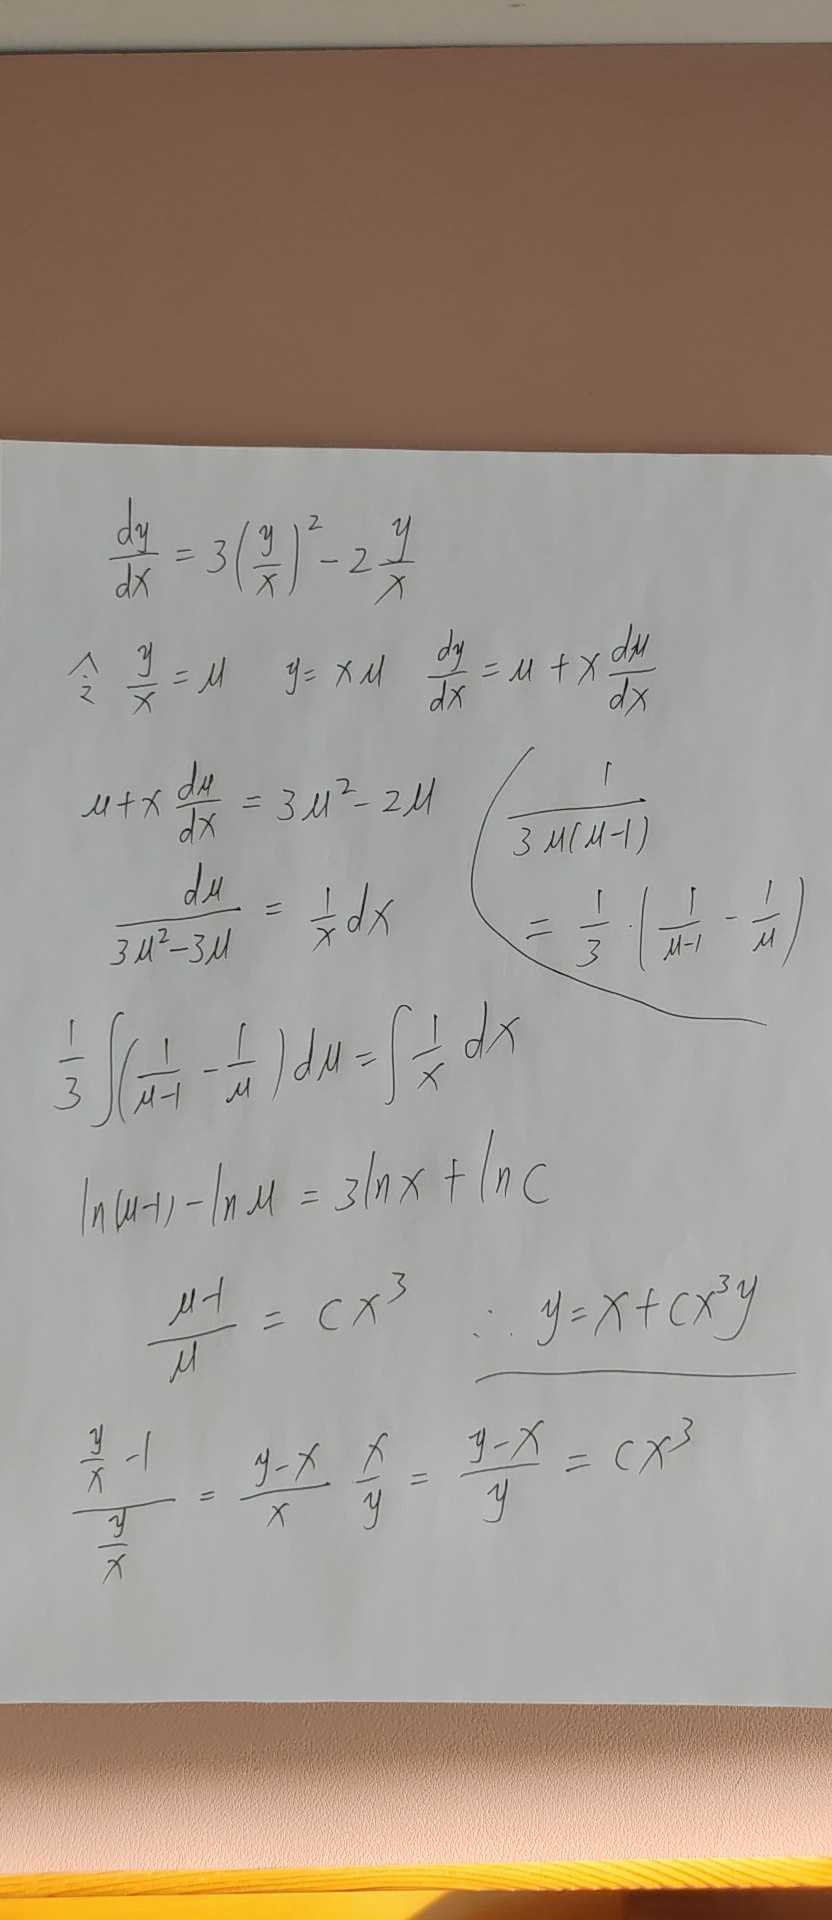 dy/dx = 3(y/x)² - 2 y/x
令 y/x = μ  y = xμ  dy/dx = μ + x dμ/dx
μ + x dμ/dx = 3μ² - 2μ
dμ/(3μ² - 3μ) = 1/x dx
1/(3μ(μ-1))
= 1/3 · (1/(μ-1) - 1/μ)
1/3 ∫(1/(μ-1) - 1/μ) dμ = ∫ 1/x dx
ln(μ-1) - ln μ = 3ln x + ln C
(μ-1)/μ = Cx³  ∴ y = x + Cx³y
(y/x - 1)/(y/x) = (y-x)/x · x/y = (y-x)/y = Cx³